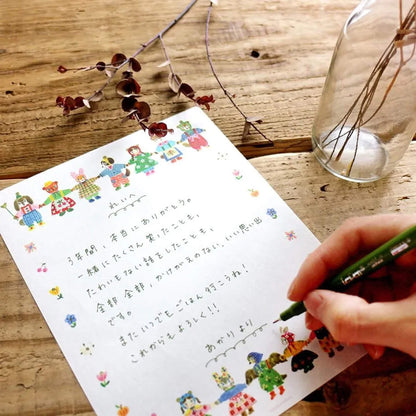 れいへ
3年間、本当にありがとう。
一緒にたくさん笑ったことも、
たわいもない話をしたことも、
全部全部、かけがえのない、いい思い出
です。
またいつでもごはん行こうね！
これからもよろしく!!
あかりより